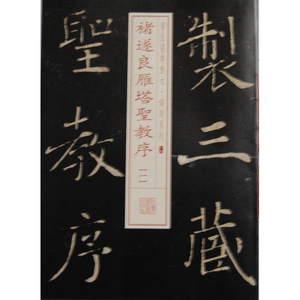 製三藏
聖教序
褚遂良雁塔聖教序